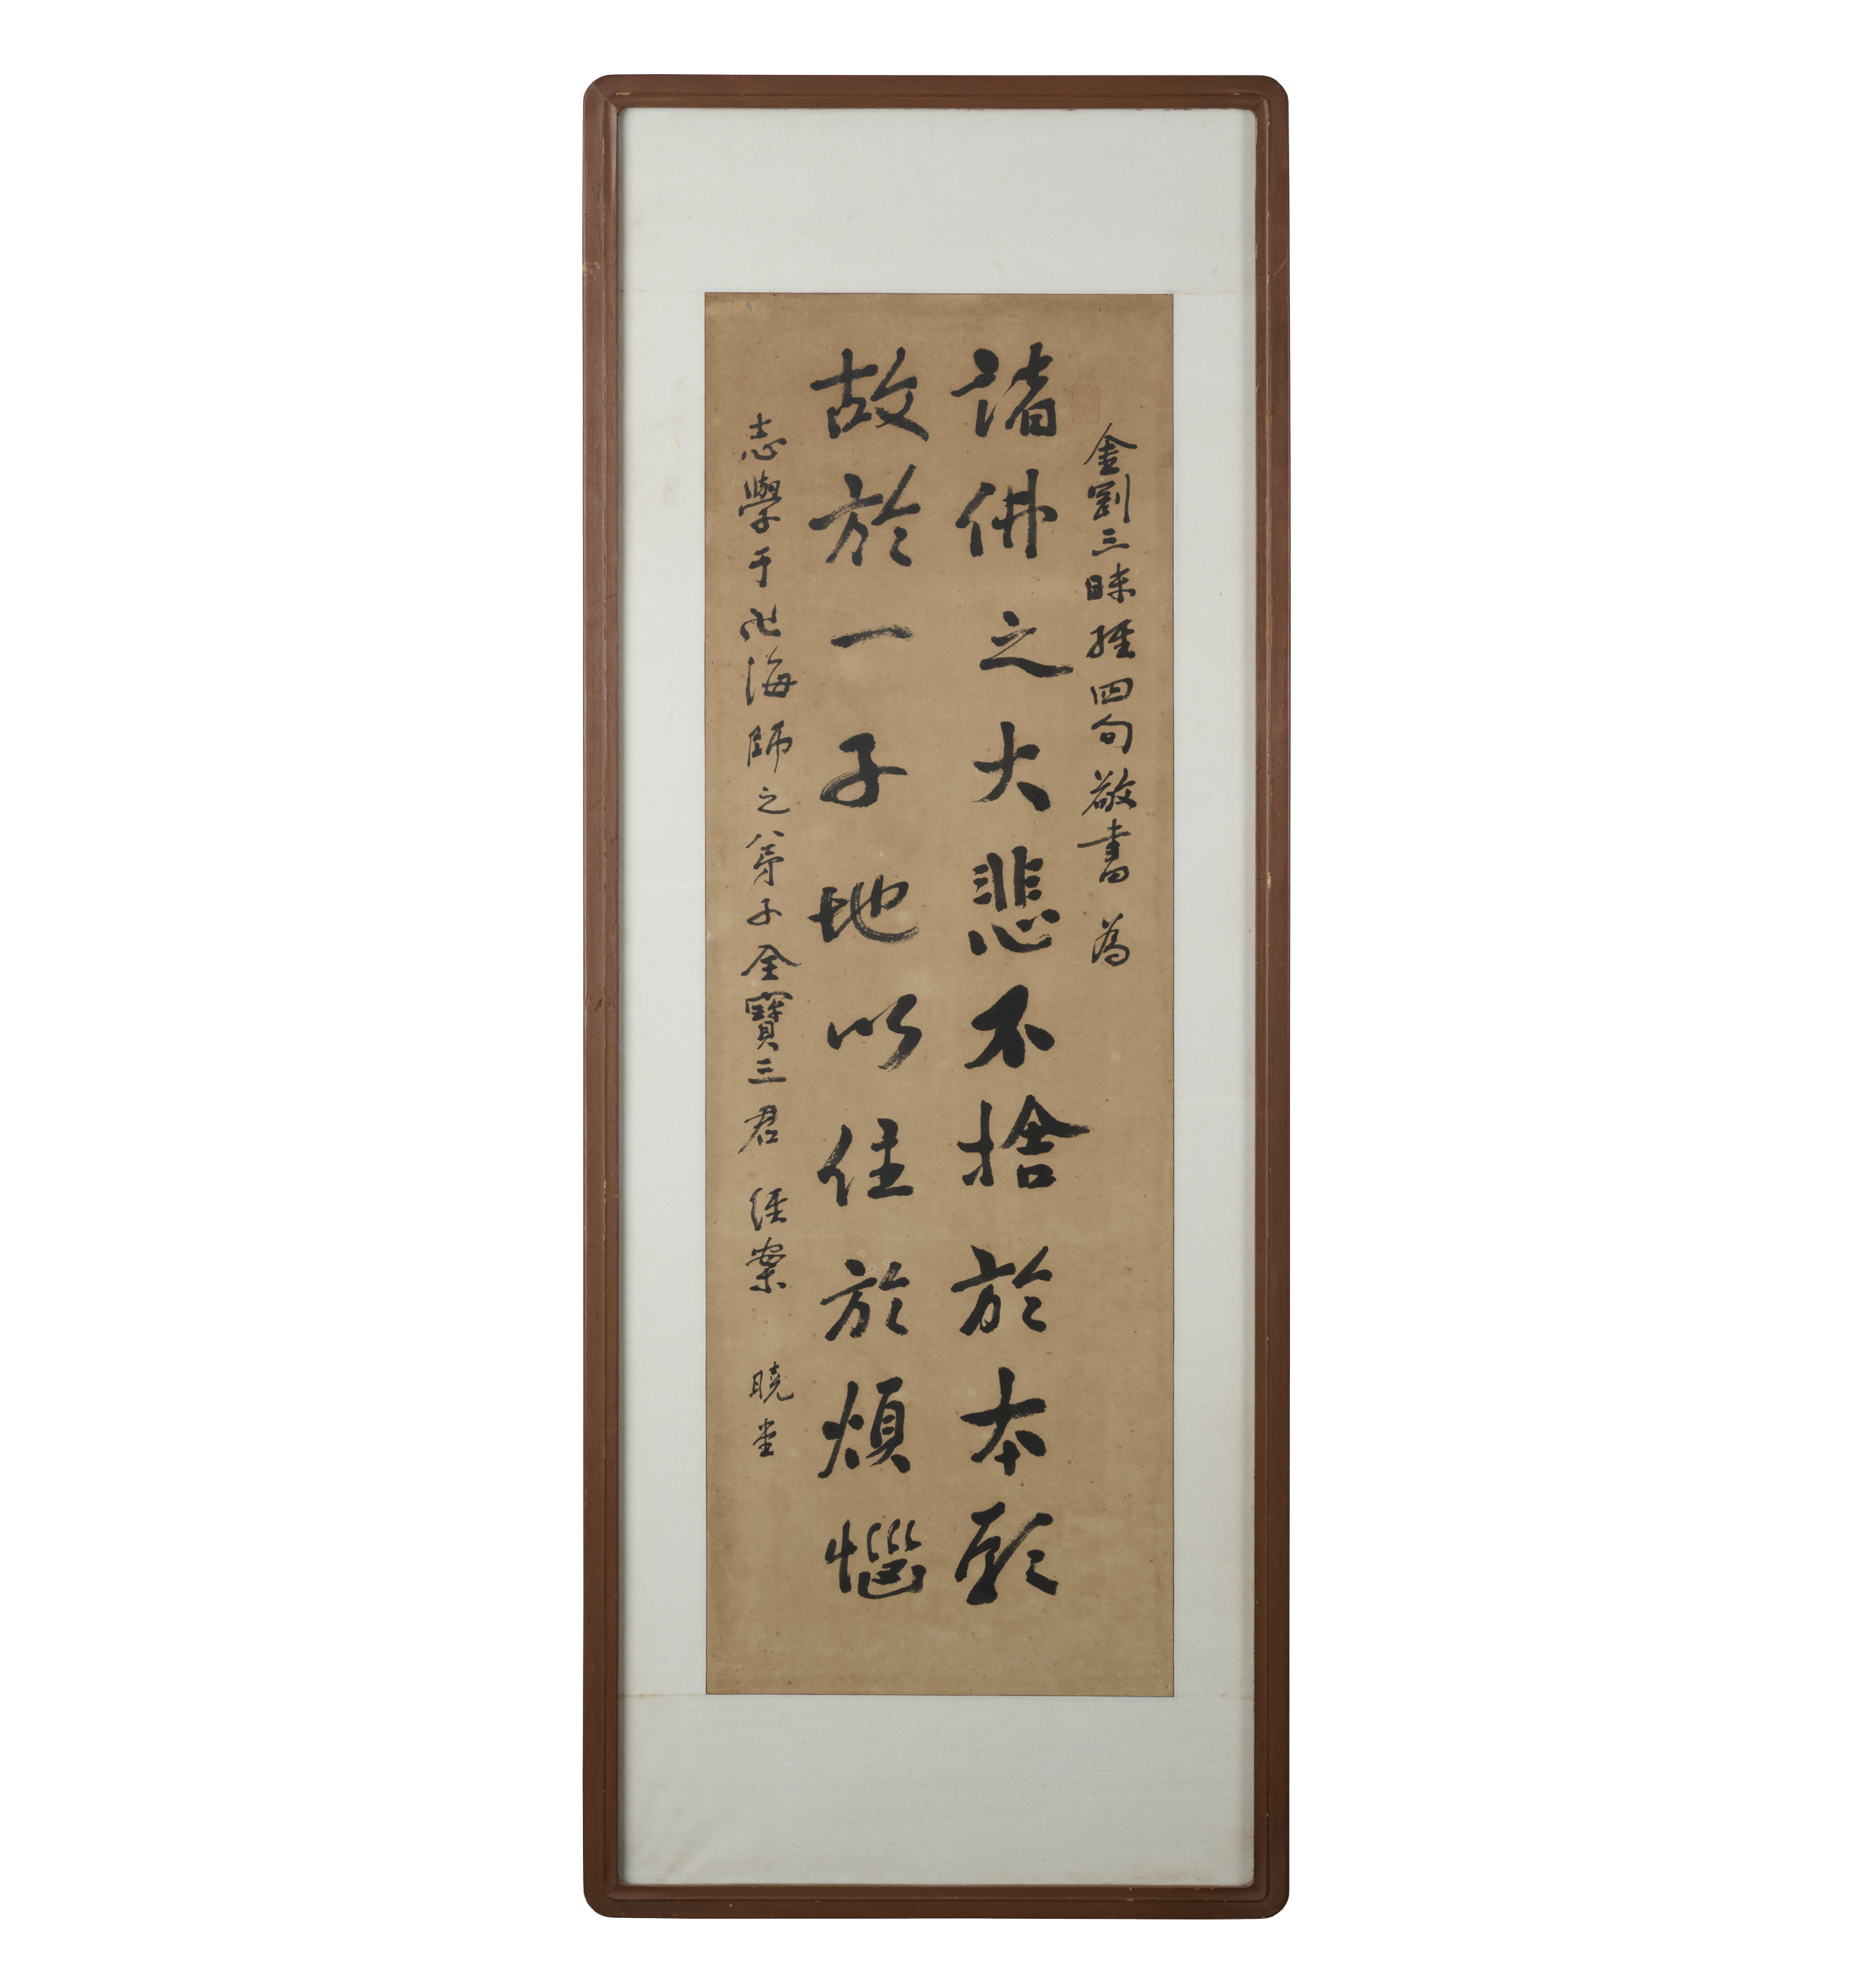 金剛三昧經四句敬書 為
諸佛之大悲不捨於本願
故於一子地以住於煩惱
志學于卍海師之弟子全寶三君 經案 曉堂